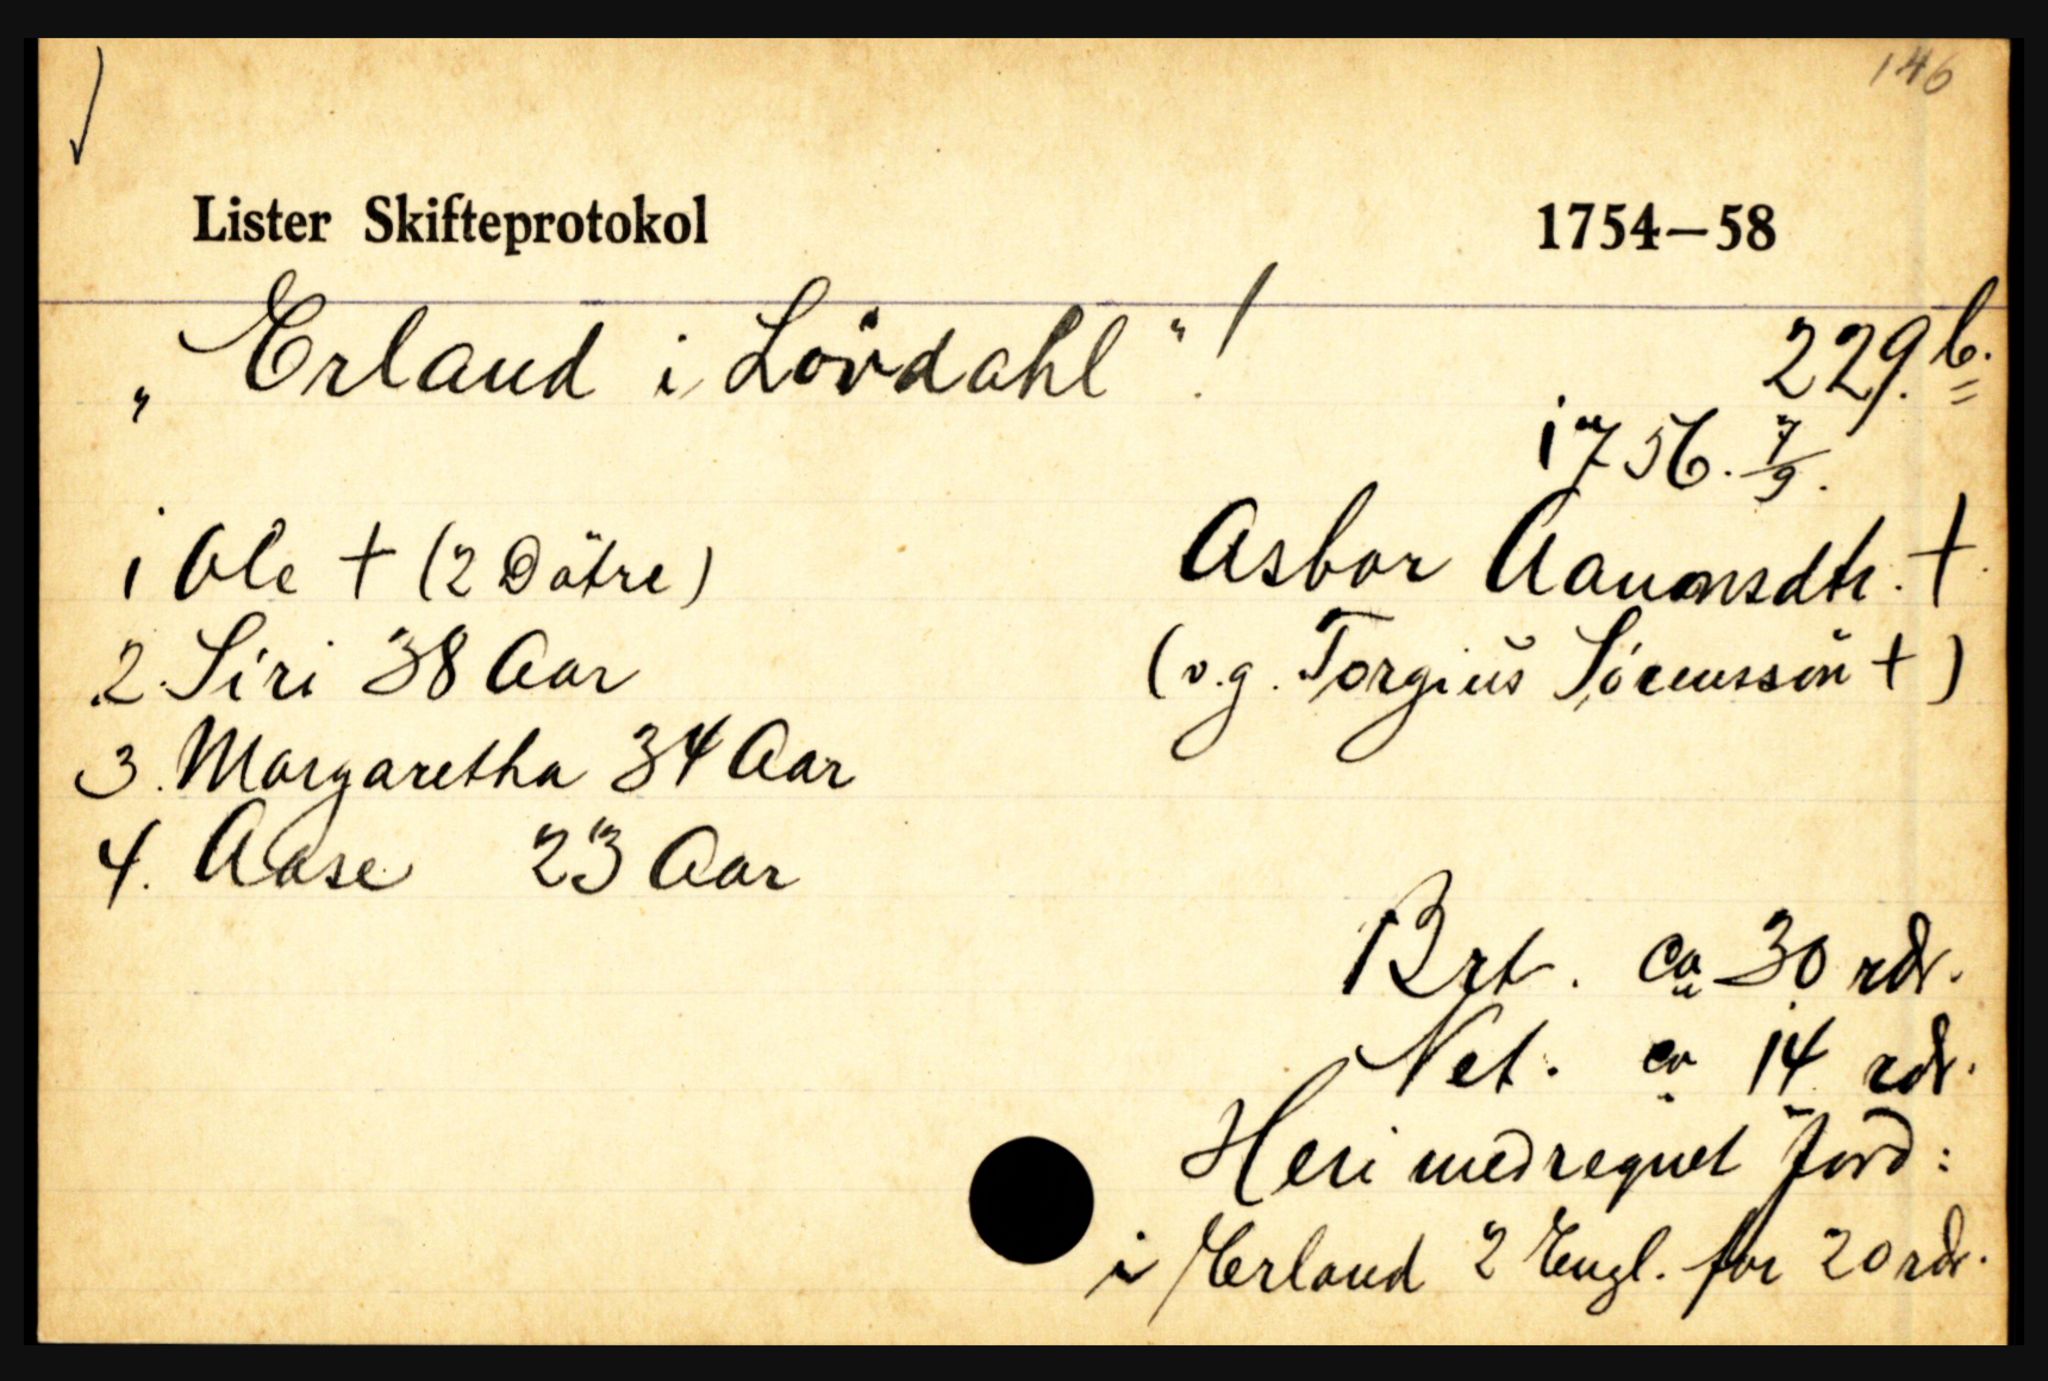 146
Lister Skifteprotokol 1754—58
„Erland i Lövdahl"! 229.b.
1756. 7/9.
1 Ole † (2 Dötre) Asbor Aanonsdtr. †
2. Siri 38 Aar (v.g. Torgius Sörensson †)
3. Margaretha 34 Aar
4. Aase 23 Aar
Brt. ca 30 rdr.
Net. ca 14 rdr.
Heri medregnet Jord:
i Erland 2 Engl. for 20 rdr.